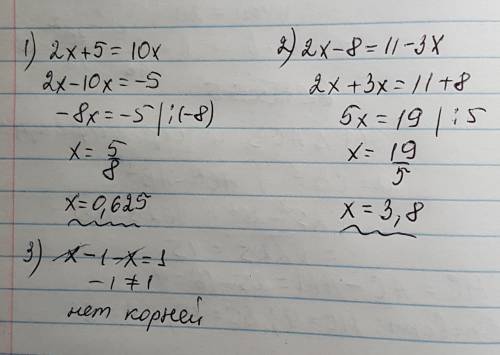 1) 2x+5=10x
2x-10x=-5
-8x=-5 | :(-8)
x=5/8
x=0,625
2) 2x-8=11-3x
2x+3x=11+8
5x=19 | :5
x=19/5
x=3,8
3) x-1-x=1
-1≠1
нет корней